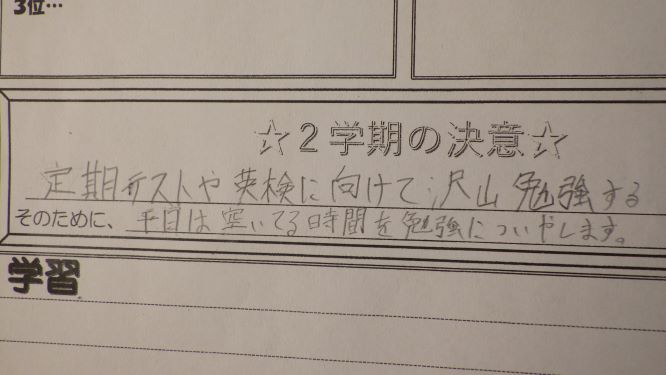 3位…
☆2学期の決意☆
定期テストや英検に向けて沢山勉強する
そのために、平日は空いてる時間を勉強についやします。
学習